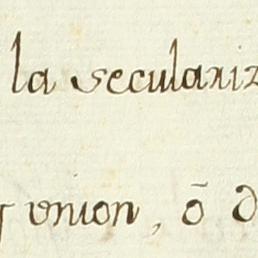 la seculariz
y union, ō d